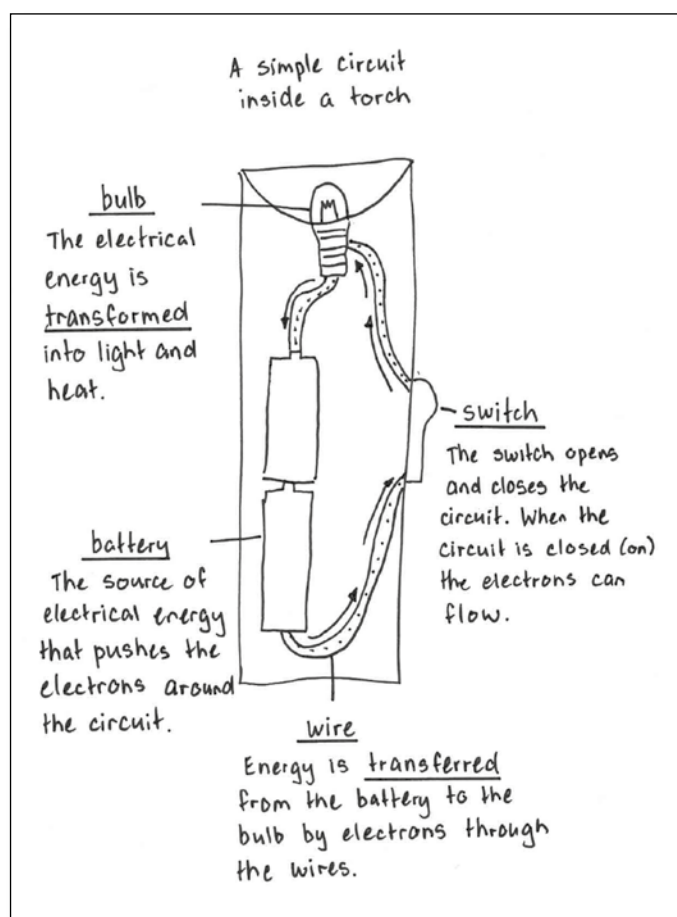 A simple circuit
inside a torch
bulb
The electrical
energy is
transformed
into light and
heat.
switch
The switch opens
and closes the
circuit. When the
circuit is closed (on)
the electrons can
flow.
battery
The source of
electrical energy
that pushes the
electrons around
the circuit.
wire
Energy is transferred
from the battery to the
bulb by electrons through
the wires.